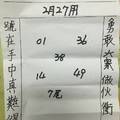 2月27用
號在手中真難得
01 36
38
14 49
7尾
勇敢大眾做伙衝